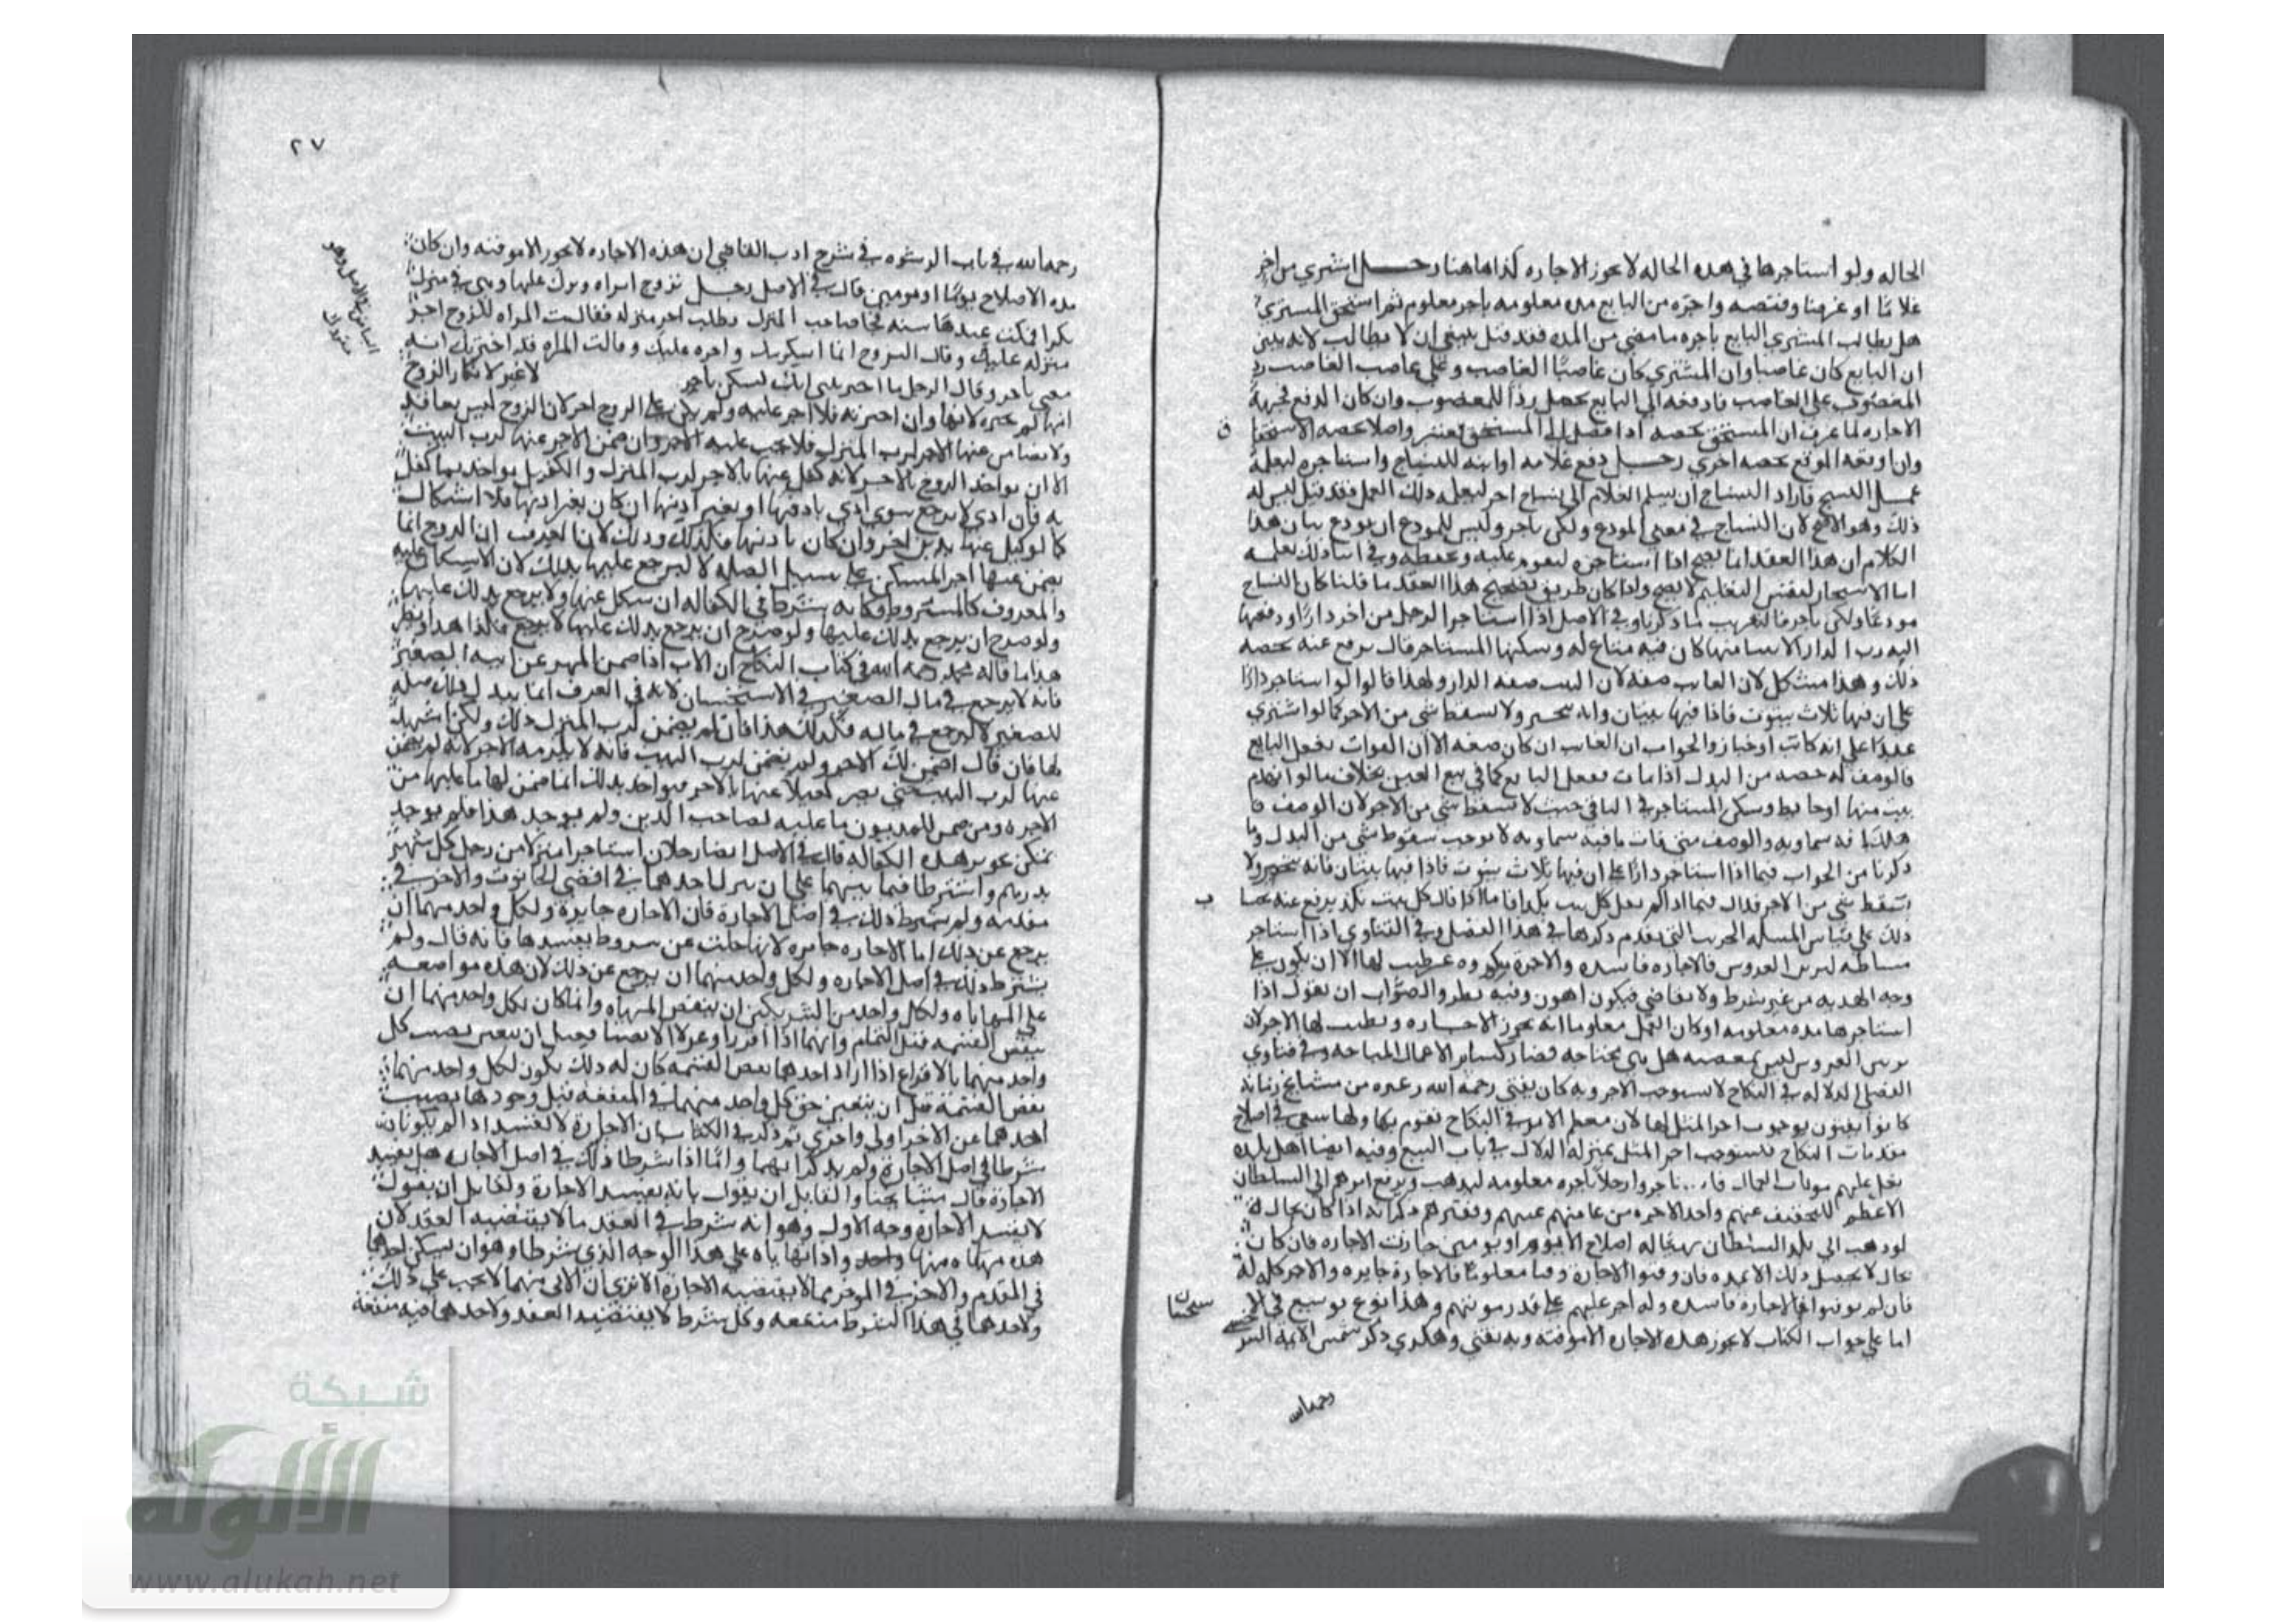 الحاله ولو استاجرها في هذه الحاله لا يجوز الاجاره كذا هاهنا رجل اشتري من اخر
غلاما او عرضا وقبضه واجره من البايع مده معلومه باجر معلوم ثم استحق المشتري
هل يطالب المشتري البايع باجره ما مضي من المده فقد قيل ينبغي ان لا يطالب لانه يتبين
ان البايع كان غاصبا وان المشتري كان غاصبا الغاصب وعلي غاصب الغاصب رد
المغصوب علي الغاصب فاد دفعه الي البايع يحصل ردا للمغصوب وان كان الدفع لجهة
الاجاره لما عرف ان المستحق بجهه اذا وصل الي المستحق يعتبر واصلا بجهه الاستحقا
ق
وان اوقعه الموقع بجهه اخري رجل دفع غلامه او ابنه للنساج واستاجره ليعلمه
عمل النسج فاراد النساج ان يسلم الغلام الي نساج اخر ليعلمه ذلك العمل فقد قيل ليس له
ذلك وهو الاصح لان النساج في معني المودع ولكن باجر وليس للمودع ان يودع بيان هذا
الكلام ان هذا العقد انما يصح اذا استاجره ليقوم عليه ويحفظه وفي اثناء ذلك يعلمه
اما الاستيجار لنفس التعليم لا يصح ولما كان طريق تصحيح هذا العقد ما قلنا كان النساج
مودعا ولكن باجر
وفي الاصل اذا استاجر الرجل من اخر دارا ودفعها
اليه رب الدار الا بيتا منها كان فيه متاع له وسكنها المستاجر قال يرفع عنه بحصه
ذلك وهذا مشكل لان الفايت صفه لان البيت صفه الدار ولهذا قالوا لو استاجر دارا
علي ان فيها ثلاث بيوت فاذا فيها بيتان وانه يتخير ولا يسقط شي من الاجر كما لو اشتري
عبدا علي انه كاتب او خباز والجواب ان الفايت ان كان صفه الا ان الفوات بفعل البايع
فالوصف له حصه من البدل اذا فات بفعل البايع كما في بيع العين بخلاف ما لو انهدم
بيت منها او حايط وسكن المستاجر في الباقي حيث لا يسقط شي من الاجر لان الوصف ها
هنا فات بافه سماويه والوصف متي فات بافه سماويه لا يوجب سقوط شي من البدل وما
ذكرنا من الجواب فيما اذا استاجر دارا علي ان فيها ثلاث بيوت فاذا فيها بيتان فانه يتخير ولا
يسقط شي من الاجر فذاك فيما اذا لم يقل كل بيت بكذا فاما اذا قال كل بيت بكذا يرفع عنه
ب
ذلك علي قياس المسله التي تقدم ذكرها في هذا الفصل وفي الفتاوي اذا استاجر
مشاطه لتزين العروس فالاجاره فاسده والاجرة مكروه غير طيب لها الا ان يكون علي
وجه الهديه من غير شرط ولا تقاضي فيكون اهون وفيه نظر والصواب ان نقول اذا
استاجرها مده معلومه او كان العمل معلوما انه يجوز الاجاره ويطيب لها الاجر لان
تزيين العروس ليس بمعصيه بل هي مباحه فصار كساير الاعمال المباحه وفي فتاوي
الفضلي الدلاله في النكاح لا يستوجب الاجر وبه كان يفتي رحمه الله وغيره من مشايخ زمانه
كانوا يفتون بوجوب اجر المثل لها لان معظم الامر في النكاح تقوم بها ولها سعي في اصلاح
مقدمات النكاح فتستوجب اجر المثل بمنزله الدلال في باب البيع وفيه ايضا اهل بلده
ثقل عليهم مونات العمال فاستاجروا رجلا باجره معلومه ليذهب ويرفع امرهم الي السلطان
الاعظم للتخفيف عنهم واخذ الاجره من عامتهم غنيهم وفقيرهم ذكر انه اذا كان بحال له
لو ذهب الي بلد السلطان يتهيا له اصلاح الامر يوما او يومين جازت الاجاره فان كان
بحال لا يحصل ذلك الا بمده فان وقتوا الاجارة وقتا معلوما فالاجارة جايزه والاجر كله له
فان لم يوقتوا فالاجاره فاسده وله اجر عليهم علي قدر مونتهم وهذا نوع توسيع
اما علي جواب الكتاب لا يجوز هذه الاجاره الا موقته وبه يفتي وهكذي ذكر شمس الايمه السر
رحمه الله
٢٧
رحمه الله في باب الرشوه في شرح ادب القاضي ان هذه الاجاره لا يجوز الا موقته وان كان
مده الاصلاح يوما او يومين قال في الاصل رجل تزوج امراه ونزل عليها وهي في منزل
بكرا فمكث عندها سنه فجا صاحب المنزل يطلب اجر منزله فقالت المراه للزوج اجر
منزله عليك وقال الزوج انما اسكنتك واجره عليك وقالت المراه قد اخبرتك انه
معي باجر وقال الرجل ما اخبرتني انك تسكن باجر
لا غير لانكار الزوج
انها لم تخبره لانها وان اخبرته فلا اجر عليه ولم يكن علي الزوج اجر لان الزوج ليس بعاقد
ولا ضامن عنها الاجر لرب المنزل فلا يجب عليه الاجر وان ضمن الاجر عنها لرب البيت
الا ان يواخذ الزوج بالاجر لانه كفل عنها بالاجر لرب المنزل والكفيل يواخذ بما كفل
به فان ادي لا يرجع سوي ادي باذنها او بغير اذنها ان كان بغير اذنها فلا اشكال
كما لو كفل عنها بدين اخر وان كان باذنها فكذلك وذلك لانا نعرف ان الزوج انما
يضمن عنها اجر المسكن علي سبيل الصله لا ليرجع عليها بذلك لان الاسكان عليه
والمعروف كالمشروط وكانه شرط في الكفاله ان يتكفل عنها ولا يرجع بذلك عليها
ولو صرح ان يرجع بذلك عليها ولو صرح ان يرجع بذلك عليها لا يرجع فكذا هذا ونظير
هذا ما قاله محمد رحمه الله في كتاب النكاح ان الاب اذا ضمن المهر عن ابنه الصغير
فانه لا يرجع في مال الصغير في الاستحسان لانه في العرف انما يبذل ذلك صله
للصغير لا ليرجع في ماله فكذلك هذا فان لم يضمن لرب المنزل ذلك ولكن اشهد
لها فان قال اضمن لك الاجر ولم يضمن لرب البيت فانه لا يلزمه الاجر لانه لم يضمن
عنها لرب البيت حتي يصير كفيلا عنها بالاجر فيواخذ بذلك انما ضمن لها ما عليها من
الاجره ومن ضمن للمديون ما عليه لصاحب الدين ولم يوجد هذا فلم يوجد
هذه الكفاله قال في الاصل ايضا رجلان استاجرا منزلا من رجل كل شهر
بدرهم واشترطا فيما بينهما علي ان ينزل احدهما في اقصي الحانوت والاخر في
مقدمه ولم يشترط ذلك في اصل الاجارة فان الاجاره جايزة ولكل واحد منهما ان
يرجع عن ذلك اما الاجاره جايزه لانها خلت عن شروط يفسدها فانه قال ولم
يشترط ذلك في اصل الاجاره ولكل واحد منهما ان يرجع عن ذلك لان هذه مواضعه
علي المهاياه ولكل واحد من الشريكين ان ينقض المهاياه وانما كان لكل واحد منهما ان
ينقض القسمه قبل التمام وانهما اذا اقرعا وعزلا الانصبا قبل ان يتعين نصيب كل
واحد منهما بالاقراع اذا اراد احدهما نقض القسمه كان له ذلك يكون لكل واحد منهما
نقض القسمة قبل ان يتعين حق كل واحد منهما في المنفعه قبل وجودها نصيب
احدهما عن الاخر اولي واحري ثم ذكر في الكتاب ان الاجارة لا تفسد اذا لم يكونا
شرطا في اصل الاجارة ولم يذكرا بينهما واما اذا شرطا ذلك في اصل الاجاره هل يفسد
الاجارة قال مشايخنا والقايل ان يقول بانه يفسد الاجارة ولقايل ان يقول
لا يفسد الاجاره وجه الاول وهو انه شرط في العقد ما لا يقتضيه العقد لان
هذه مهاياه منهما واحد واذا تهاياه علي هذا الوجه الذي شرطا وهو ان يسكن احدهما
في المقدم والاخر في الموخر مما لا يقتضيه الاجارة الا تري ان الابي منهما لا يجب علي ذلك
ولاحدهما في هذا الشرط منفعه وكل شرط لا يقتضيه العقد ولاحدهما فيه منفعة
شبكة
الألوكة
www.alukah.net